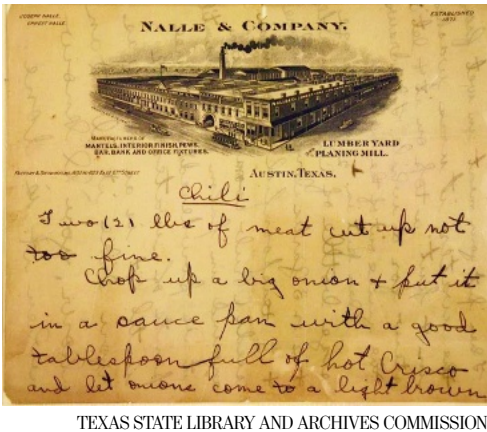 JOSEPH NALLE
ERNEST NALLE
ESTABLISHED
1871
NALLE & COMPANY.
MANUFACTURERS OF
MANTELS, INTERIOR FINISH, PEWS,
BAR, BANK AND OFFICE FIXTURES.
LUMBER YARD
PLANING MILL.
AUSTIN, TEXAS,
Chili
Two (2) lbs of meat cut up not
too fine.
Chop up a big onion + put it
in a sauce pan with a good
tablespoon full of hot Crisco
and let onions come to a light brown
TEXAS STATE LIBRARY AND ARCHIVES COMMISSION